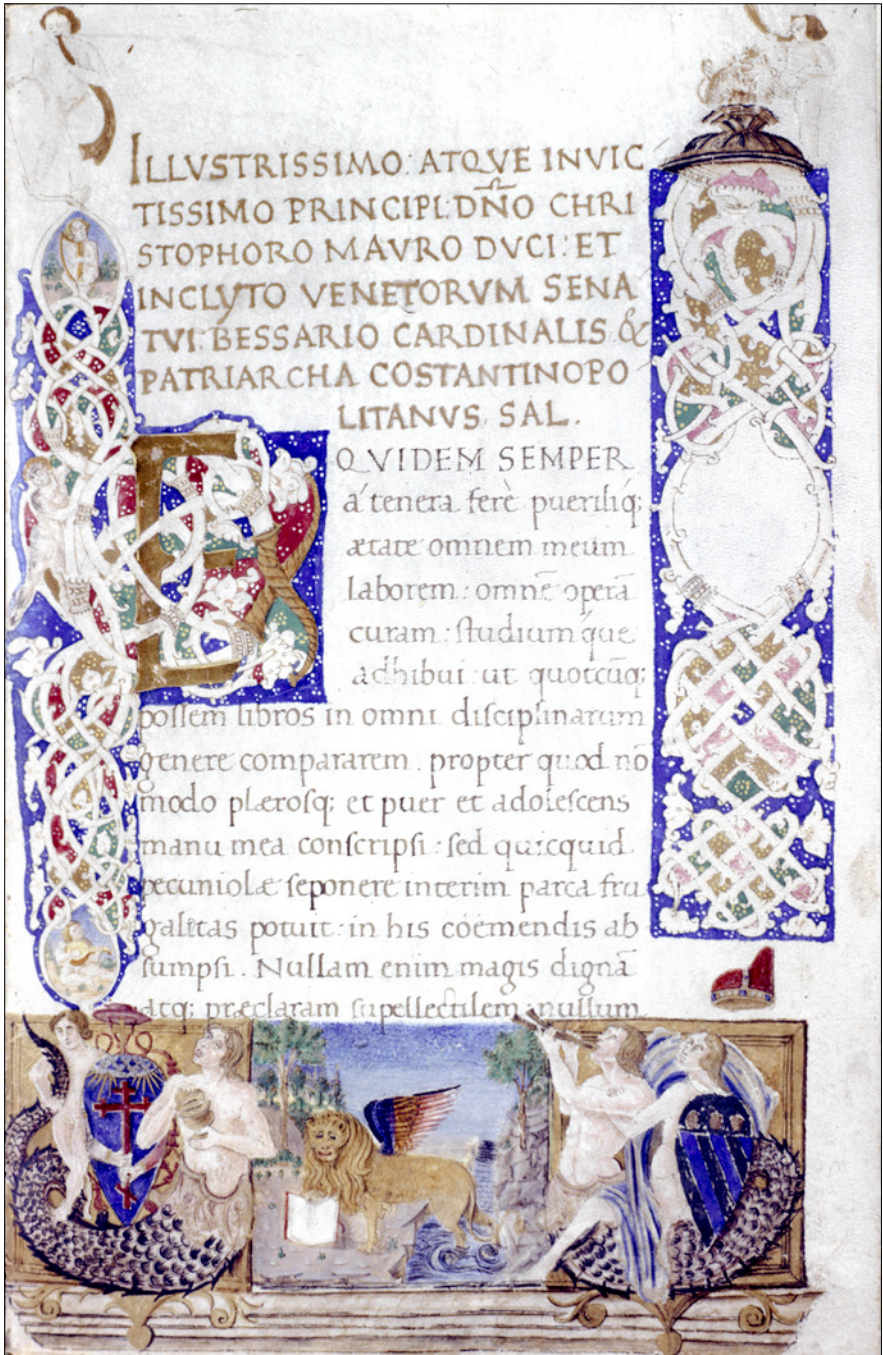 ILLVSTRISSIMO: ATQVE INVIC
TISSIMO PRINCIPI: DÑO CHRI
STOPHORO MAVRO DVCI: ET
INCLYTO VENETORVM SENA
TVI: BESSARIO CARDINALIS &
PATRIARCHA COSTANTINOPO
LITANVS, SAL.
EQVIDEM SEMPER
á tenera ferè pueriliq;
ætate omnem meum
laborem: omnē operā
curam: studium que
adhibui ut quotcūq;
possem libros in omni disciplinarum
genere compararem. propter quod nō
modo plærosq; et puer et adolescens
manu mea conscripsi: sed quicquid
pecuniolæ seponere interim parca fru
galitas potuit: in his coemendis ab
sumpsi. Nullam enim magis dignā
atq; præclaram supellectilem: nullum